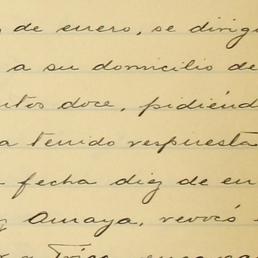 de enero, se dirig
a su domicilio de
ntos doce, pidiend
a tenido respuesta
fecha diez de en
Amaya, revocó